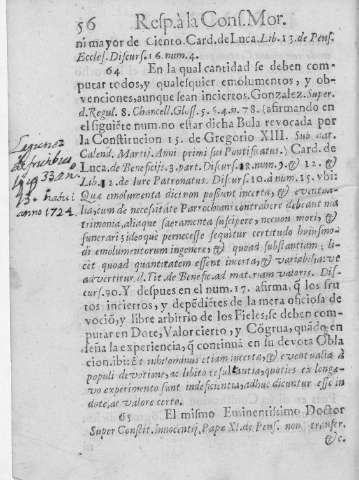 56 Resp. à la Cons. Mor.
ni mayor de Ciento. Card. de Luca. Lib. 13. de Pens.
Eccles. Discurs. 16. num. 4.
64 En la qual cantidad se deben com-
putar todos, y qualesquier emolumentos, y ob-
venciones, aunque sean inciertos. Gonzalez. Super.
d. Regul. 8. Chancell. Gloss. 5. §. 4. n. 78. (afirmando en
el siguiẽte num. no estar dicha Bula revocada por
la Constitucion 15. de Gregorio XIII. Sub dat.
Calend. Martij. Anni primi sui Pontificatus.) Card. de
Luca. de Beneficijs. 3. part. Discurs. 18. num. 9. & 12. &
Lib. 12. de Iure Patronatus. Discurs. 10. à num. 15. vbi:
Que emolumenta dicì non possunt incerta, & eventua-
lia, cum de necesitate Parrochiani contrahere debeant ma
trimonia, aliaque sacramenta suscipere, necnon mori, &
funerari; ideoque pernecesse sequitur certitudo huiusmo-
di emolumentorum in genere; & quoad substantiam, li-
cèt quoad quantitatem essent incerta, & variabilia: ve
advertitur d. Tit. de Benefic. ad materiam valoris. Dis-
curs. 90. Y despues en el num. 17. afirma, q̃ los fru
tos inciertos, y depẽdiẽtes de la mera oficiosa de
vociõ, y libre arbitrio de los Fieles, se deben com-
putar en Dote, Valor cierto, y Cõgrua, quãdo en
seña la experiencia, q̃ continuà en su devota Obla
cion. ibi: Et nihilominus etiam incerta, & eventualia à
populi devotione, ac libito resultantia, quoties ex longe-
vo experimento sunt indeficientia, adhuc dicuntur esse in
dote, ac valore certo.
65 El mismo Eminentissimo Doctor
Super Constit. Innocentij. Papæ XI. de Pens. non transfer.
&c.
anno 1724